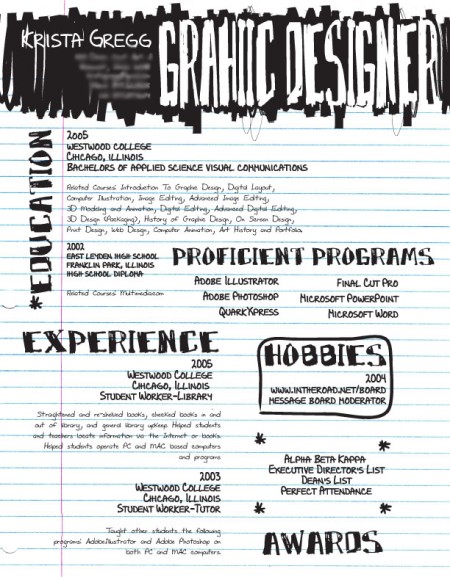 KRISTA GREGG
GRAHIIC DESIGNER
*EDUCATION
2005
WESTWOOD COLLEGE
CHICAGO, ILLINOIS
BACHELORS OF APPLIED SCIENCE VISUAL COMMUNICATIONS
Related Courses: Introduction To Graphic Design, Digital Layout,
Computer Illustration, Image Editing, Advanced Image Editing,
3D Modeling and Animation, Digital Editing, Advanced Digital Editing,
3D Design (Packaging), History of Graphic Design, On Screen Design,
Print Design, Web Design, Computer Animation, Art History and Portfolio.
2002
EAST LEYDEN HIGH SCHOOL
FRANKLIN PARK, ILLINOIS
HIGH SCHOOL DIPLOMA
Related Courses: Multimedia.com
PROFICIENT PROGRAMS
ADOBE ILLUSTRATOR
ADOBE PHOTOSHOP
QUARKXPRESS
FINAL CUT PRO
MICROSOFT POWERPOINT
MICROSOFT WORD
EXPERIENCE
2005
WESTWOOD COLLEGE
CHICAGO, ILLINOIS
STUDENT WORKER-LIBRARY
Straightened and re-shelved books, checked books in and
out of library, and general library upkeep. Helped students
and teachers locate information via the Internet or books.
Helped students operate PC and MAC based computers
and programs
2003
WESTWOOD COLLEGE
CHICAGO, ILLINOIS
STUDENT WORKER-TUTOR
Taught other students the following
programs: AdobeIllustrator and Adobe Photoshop on
both PC and MAC computers
HOBBIES
2004
WWW.INTHEROAD.NET/BOARD
MESSAGE BOARD MODERATOR
ALPHA BETA KAPPA
EXECUTIVE DIRECTOR'S LIST
DEAN'S LIST
PERFECT ATTENDANCE
AWARDS